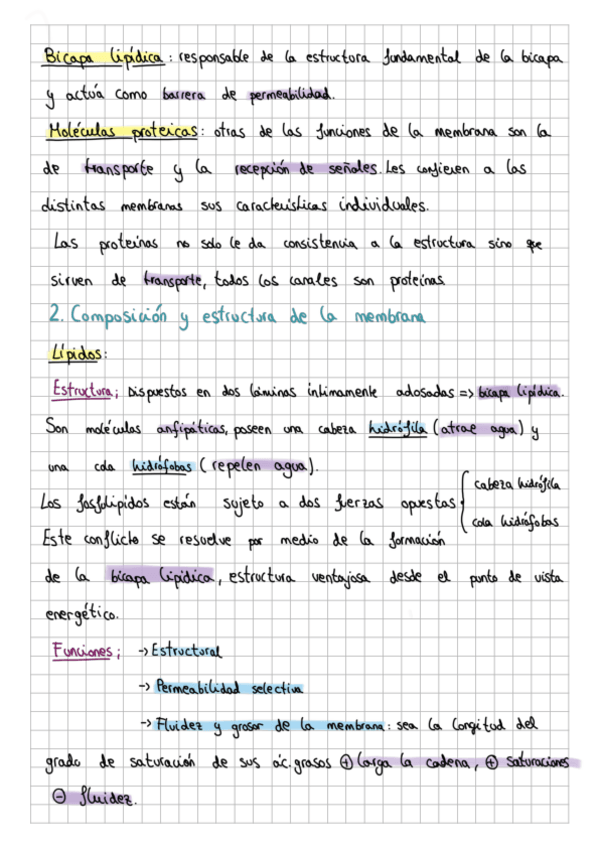 Bicapa lipídica: responsable de la estructura fundamental de la bicapa
y actúa como barrera de permeabilidad.
Moléculas proteicas: otras de las funciones de la membrana son la
de transporte y la recepción de señales. Les confieren a las
distintas membranas sus características individuales.
Las proteínas no solo le da consistencia a la estructura sino que
sirven de transporte, todos los canales son proteínas.
2. Composición y estructura de la membrana
Lípidos:
Estructura; Dispuestos en dos láminas íntimamente adosadas => bicapa lipídica.
Son moléculas anfipáticas, poseen una cabeza hidrófila (atrae agua) y
una cola hidrófobas (repelen agua).
Los fosfolípidos están sujeto a dos fuerzas opuestas { cabeza hidrófila
cola hidrófobas
Este conflicto se resuelve por medio de la formación
de la bicapa lipídica, estructura ventajosa desde el punto de vista
energético.
Funciones; -> Estructural
-> Permeabilidad selectiva
-> Fluidez y grosor de la membrana: sea la longitud del
grado de saturación de sus ác. grasos ⊕ larga la cadena, ⊕ saturaciones
⊖ fluidez.